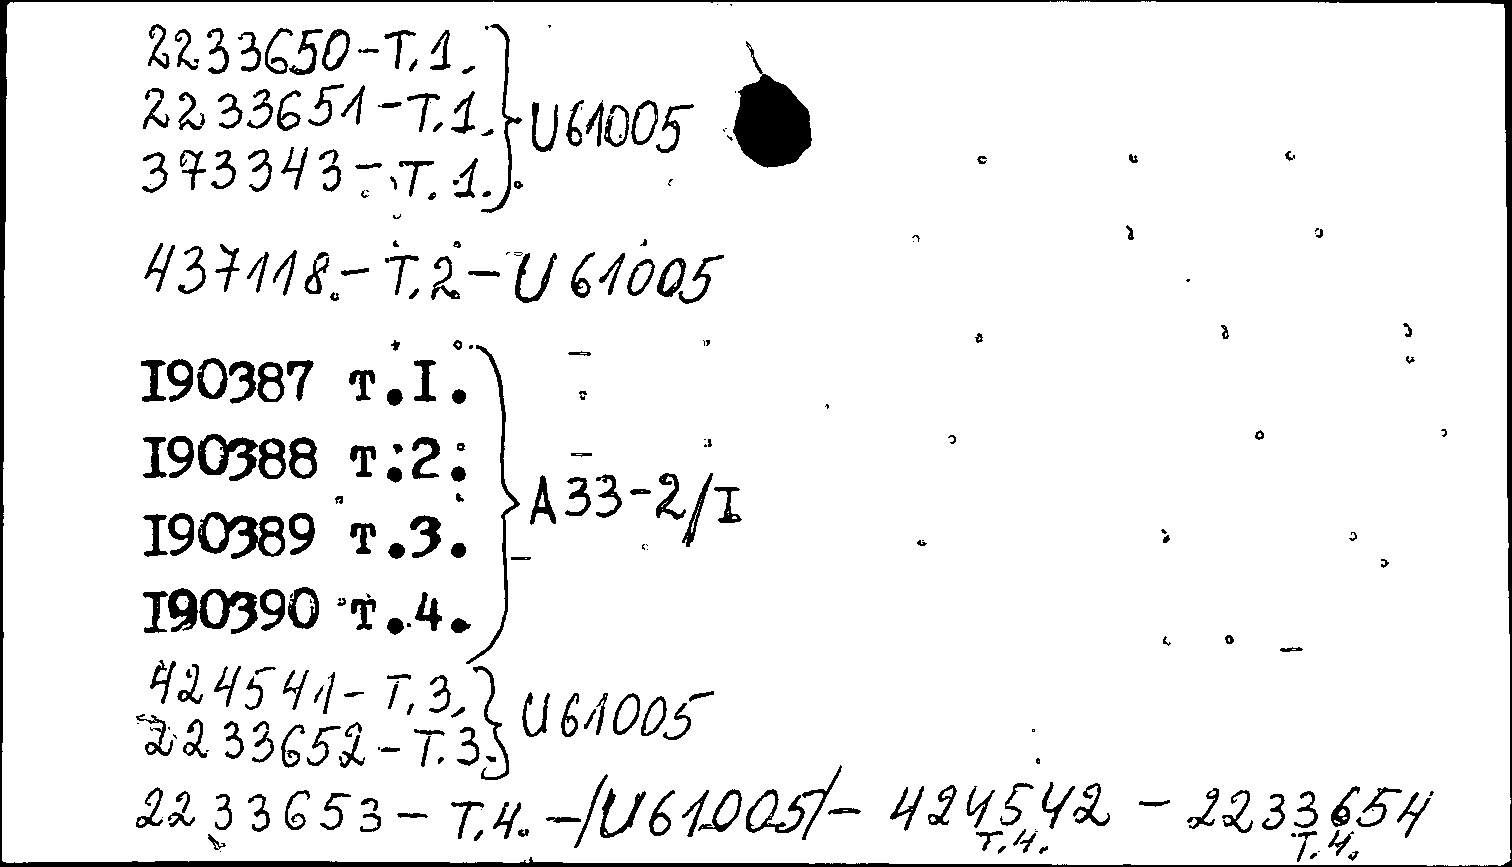 2233650-Т.1.
2233651-Т.1.
373343-Т.1.
U61005
437118.-Т.2-U61005
I90387 т.I.
I90388 т.2.
I90389 т.3.
I90390 т.4.
А33-2/I
424541-Т.3.
2233652-Т.3.
U61005
2233653-Т.4.-/U61005/-424542-2233654
Т.4. Т.4.